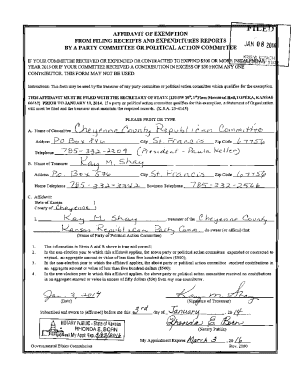 AFFIDAVIT OF EXEMPTION
FROM FILING RECEIPTS AND EXPENDITURES REPORTS
BY A PARTY COMMITTEE OR POLITICAL ACTION COMMITTEE
FILED
JAN 08 2014
IF YOUR COMMITTEE RECEIVED OR EXPENDED OR CONTRACTED TO EXPEND $500 OR MORE
YEAR 2013 OR IF YOUR COMMITTEE RECEIVED A CONTRIBUTION IN EXCESS OF $50 FROM ANY ONE
CONTRIBUTOR, THIS FORM MAY NOT BE USED.
Instructions: This form may be used by the treasurer of any party committee or political action committee which qualifies for the exemption.
THIS AFFIDAVIT MUST BE FILED WITH THE SECRETARY OF STATE, TOPEKA, KANSAS
PRIOR TO JANUARY 10, 2014. If a party or political committee qualifies for this exemption, a Statement of Organization
will must be filed and the treasurer must maintain the required records.
PLEASE PRINT OR TYPE
A. Name of Committee: Cheyenne County Republican Committee
Address PO Box 596 City St. Francis Zip Code 67756
Telephone 785-332- (President - Paula
B. Name of Treasurer: Kay M. Shay
Address P.O. Box 596 City St. Francis Zip Code 67756
Home Telephone 785-332-3352 Business Telephone 785-332-2566
C. Affidavit:
State of Kansas
County of Cheyenne
I Kay M. Shay treasurer of the Cheyenne County
Kansas Republican Party Comm. do swear (or affirm) that
(Name of Party or Political Action Committee)
1. The information in Items A and B above is true and correct.
2. In the non-election year to which this Affidavit applies, the above party or political action committee expended or contracted to
expend, an aggregate amount or value of less than five hundred dollars ($500).
3. In the non-election year to which this Affidavit applies, the above party or political action committee received contributions in
an aggregate amount or value of less than five hundred dollars ($500).
4. In the non-election year to which this Affidavit applies, the above party or political action committee received no contributions
in an aggregate amount or value of more than fifty dollars ($50) from any one contributor.
Jan. 3, 2014 Kay M Shay
(Date) (Signature of Treasurer)
Subscribed and sworn to (affirmed) before me this 3rd day of January 2014
NOTARY PUBLIC - State of Kansas
RHONDA E. BORN
My Appt. Exp.
Rhonda E Born
(Notary Public)
My Appointment Expires March 3 2016
Governmental Ethics Commission